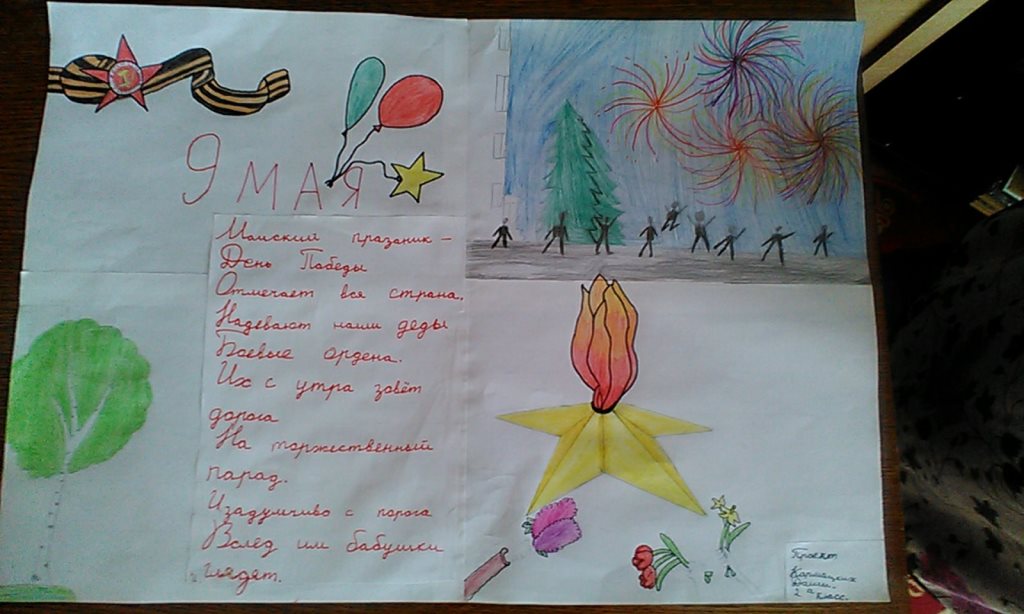 9 МАЯ
Майский празник –
День Победы
Отмечает вся страна.
Надевают наши деды
Боевые ордена.
Их с утра зовёт
дорога
На торжественный
парад.
Изадумчиво с порога
Вслед им бабушки
глядят.
Проект
Кармацких
Даши.
2 а класс.